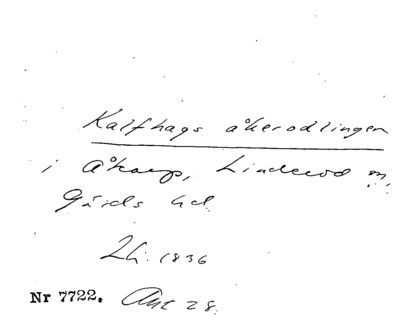 Kalfhags åkerodlingen
i Åkarp, Linderöd sn,
Gärds hd
Lti. 1836
Nr 7722. Ant 28.